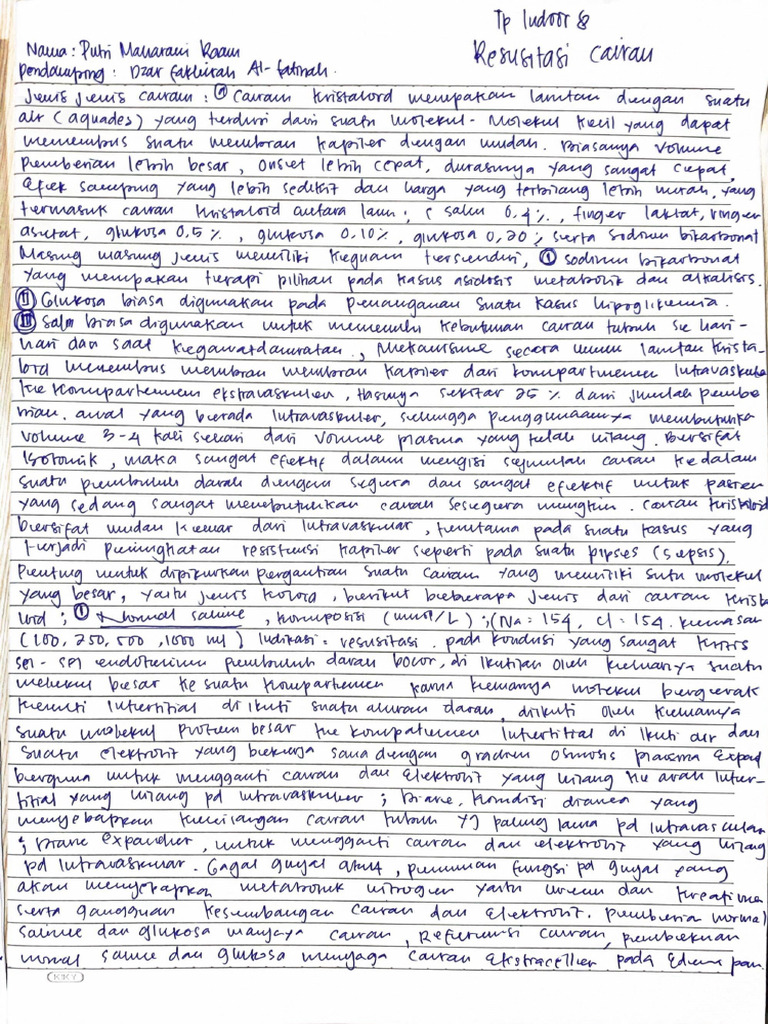 Tp Indoor 8
Resusitasi Cairan
Nama : Putri Maharani Kaam
Pendamping : Dzar Fakhirah Al-fatinah.
Jenis jenis cairan : ① Cairan Kristaloid merupakan larutan dengan suatu
air (aquades) yang terdiri dari suatu molekul-Molekul kecil yang dapat
menembus suatu membran kapiler dengan mudah. Biasanya volume
pemberian lebih besar, onset lebih cepat, durasinya yang sangat cepat,
Efek samping yang lebih sedikit dan harga yang terbilang lebih murah, yang
termasuk cairan kristaloid antara lain ; ( salin 0,4 %, finger laktat, ringer
asetat, glukosa 0,5 %, glukosa 0,10 %, glukosa 0,20 % serta Sodium bikarbonat
Masing masing jenis memiliki kegunaan tersendiri, ① sodium bikarbonat
yang merupakan terapi pilihan pada kasus asidosis metabolik dan alkalisis.
② Glukosa biasa digunakan pada penanganan suatu kasus hipoglikemia.
③ Salin biasa digunakan untuk memenuhi kebutuhan cairan tubuh se hari-
hari dan saat kegawatdaruratan, Mekanisme secara umum larutan krista-
loid menembus membran membran kapiler dari kompartmenen Intravaskuler
ke kompartemen ekstravaskuler, Hasinya sekitar 25 % dari jumlah pembe
rian awal yang berada Intravaskuler, sehingga penggunaannya membutuhkan
volume 3-4 kali sehari dari volume plasma yang telah hilang. Bersifat
Isotonik, maka sangat efektif dalam mengisi sejumlah cairan kedalam
suatu pembuluh darah dengan segera dan sangat efektif untuk pasien
yang sedang sangat membutuhkan cairan sesegera mungkin. Cairan kristaloid
bersifat mudah keluar dari Intravaskular, terutama pada suatu kasus yang
terjadi peningkatan resistensi kapiler seperti pada suatu (sepsis).
Penting untuk dipikirkan pergantian suatu Cairan yang memiliki sutu molekul
yang besar, yaitu jenis koloid, berikut beberapa jenis dari cairan krista
loid ; ① Normal saline, komposisi (mmol/L) ; (Na = 154, Cl = 154. kemasan
(100, 250, 500, 1000 ml) Indikasi = resusitasi. pada kondisi yang sangat kritis
sel-sel endotelium pembuluh darah bocor, di Ikutilah oleh keluarnya suatu
molekul besar ke suatu kompartemen karna keluarnya molekul bergerak
Intertitial di ikuti suatu aliran darah, diikuti oleh keluarnya
suatu molekul protein besar ke kompartemen Intertitial di Ikuti air dan
suatu elektrolit yang bekerja sama dengan gradien Osmosis plasma Expad
berguna untuk mengganti cairan dan Elektrolit yang hilang ke arah Inter-
titial yang hilang pd Intravaskuler ; Diare, kondisi dianea yang
menyebabkan kehilangan cairan tubuh yg paling lama pd Intravascular
; Diare expander, untuk mengganti cairan dan elektrolit yang hilang
pd Intravaskular. Gagal ginjal akut, penurunan fungsi pd ginjal yang
akan menyebabkan metabolik nitrogen yaitu ureum dan kreatinin
serta gangguan keseimbangan cairan dan elektrolit. pemberian normal
saline dan glukosa menjaga cairan, cairan,
normal saline dan glukosa menjaga cairan Ekstraceller pada Edema pan.
KKY